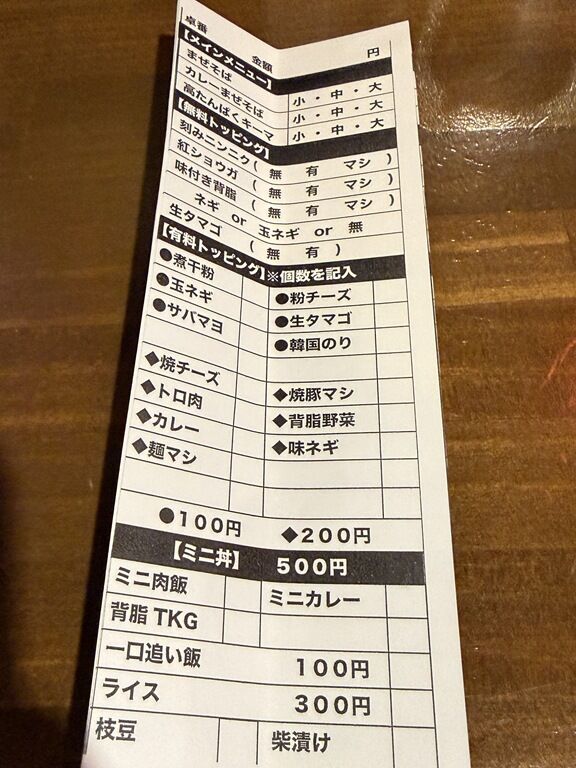 卓番 金額 円
【メインメニュー】
まぜそば 小・中・大
カレーまぜそば 小・中・大
高たんぱくキーマ 小・中・大
【無料トッピング】
刻みニンニク( 無 有 マシ )
紅ショウガ ( 無 有 マシ )
味付き背脂 ( 無 有 マシ )
ネギ or 玉ネギ or 無
生タマゴ ( 無 有 )
【有料トッピング】※個数を記入
●煮干粉 ●粉チーズ
●玉ネギ ●生タマゴ
●サバマヨ ●韓国のり
◆焼チーズ ◆焼豚マシ
◆トロ肉 ◆背脂野菜
◆カレー ◆味ネギ
◆麺マシ
●100円 ◆200円
【ミニ丼】 500円
ミニ肉飯 ミニカレー
背脂TKG
一口追い飯 100円
ライス 300円
枝豆 柴漬け